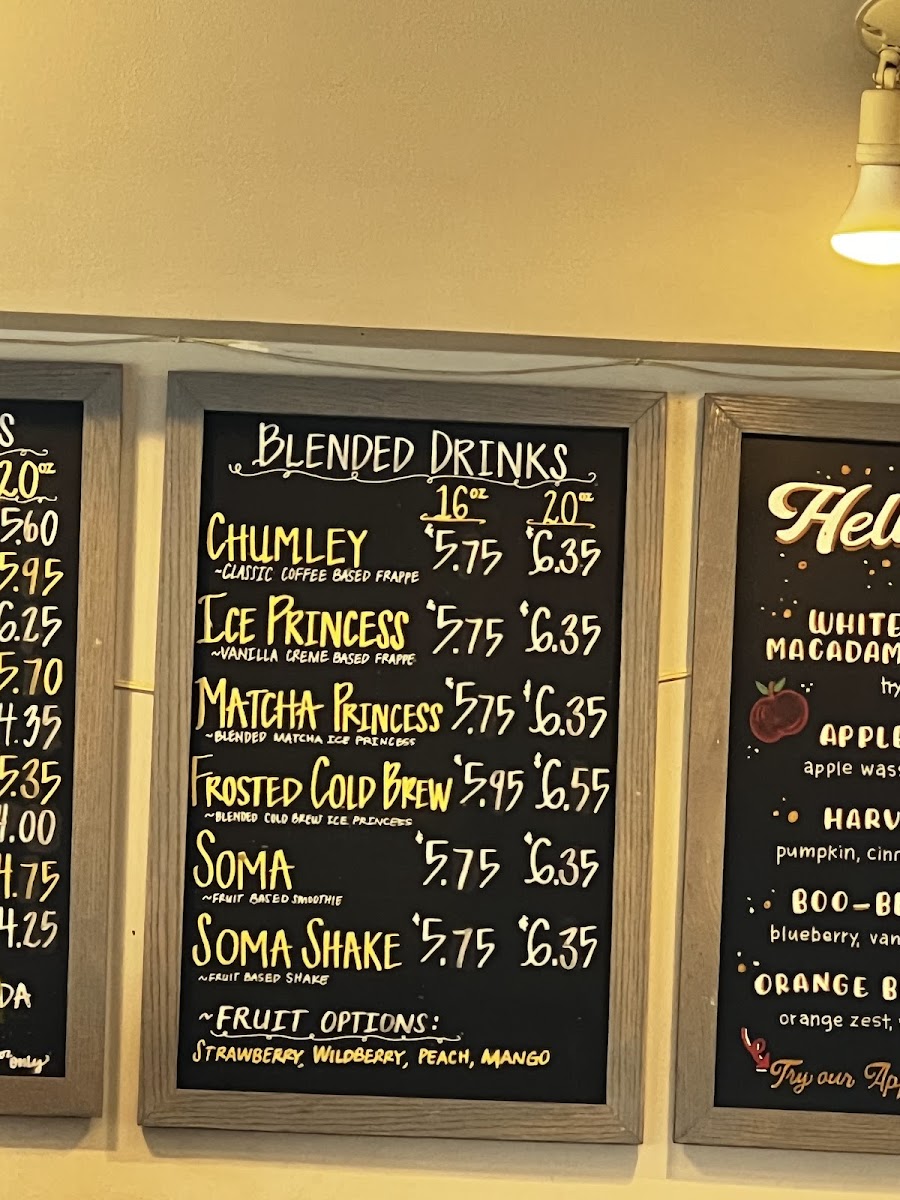 S
20oz
5.60
5.95
6.25
5.70
4.35
5.35
4.00
4.75
4.25
DA
only
BLENDED DRINKS
16oz 20oz
CHUMLEY $5.75 $6.35
~CLASSIC COFFEE BASED FRAPPE
ICE PRINCESS $5.75 $6.35
~VANILLA CREME BASED FRAPPE
MATCHA PRINCESS $5.75 $6.35
~BLENDED MATCHA ICE PRINCESS
FROSTED COLD BREW $5.95 $6.55
~BLENDED COLD BREW ICE PRINCESS
SOMA $5.75 $6.35
~FRUIT BASED SMOOTHIE
SOMA SHAKE $5.75 $6.35
~FRUIT BASED SHAKE
~FRUIT OPTIONS:
STRAWBERRY, WILDBERRY, PEACH, MANGO
Hell
WHITE
MACADAM
try
APPLE
apple wass
HARV
pumpkin, cinn
BOO-BE
blueberry, van
ORANGE B
orange zest,
Try our App